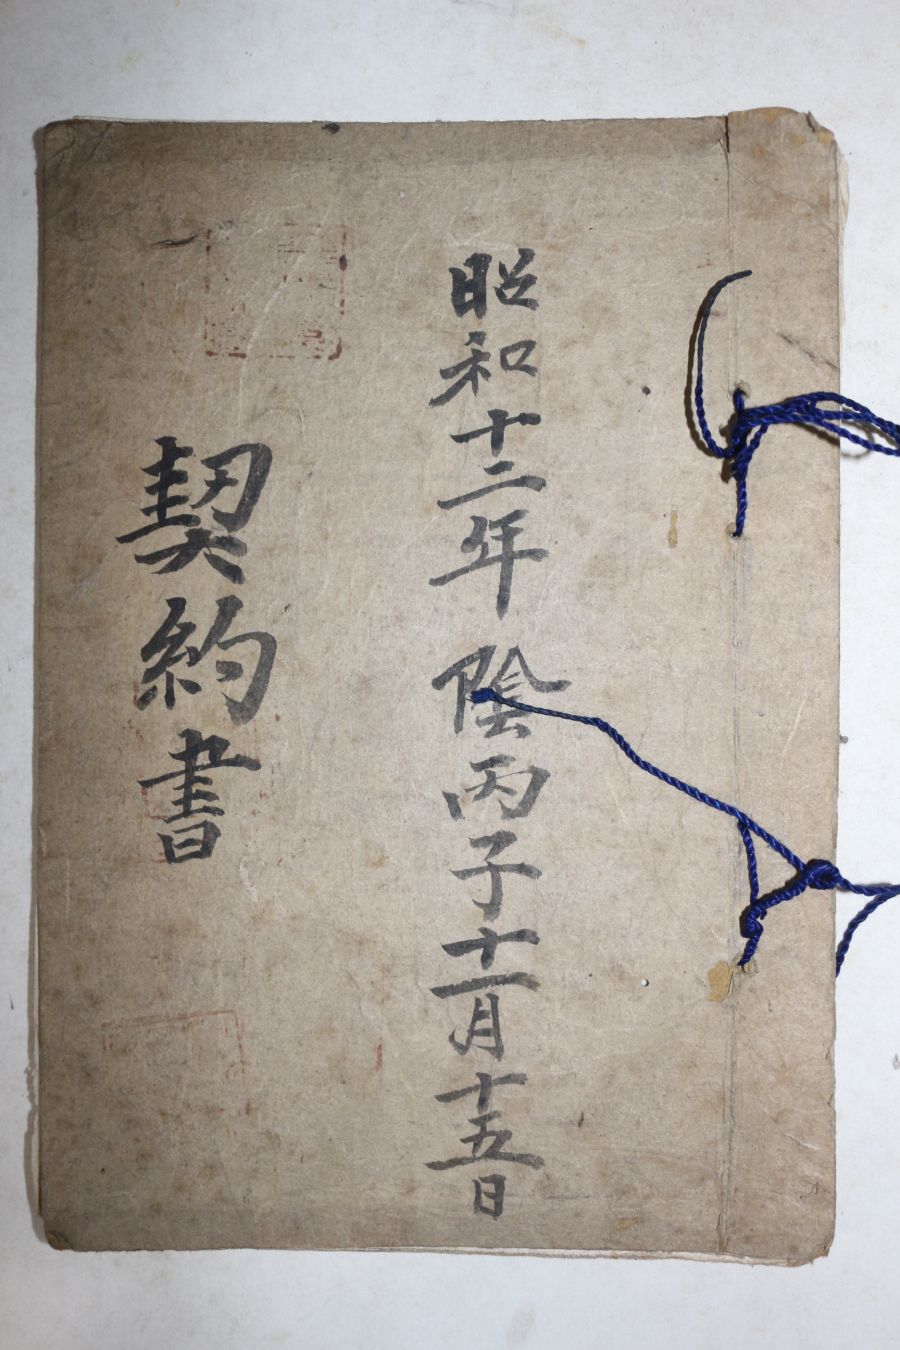 昭和十二年陰丙子十一月十五日
契約書